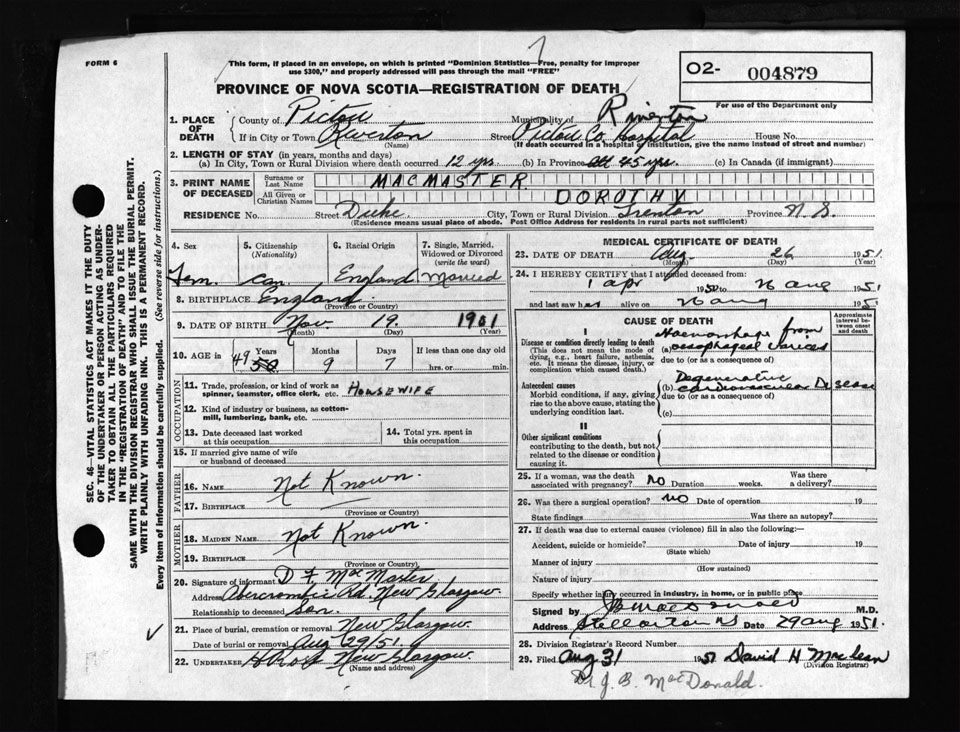 FORM 6
This form, if placed in an envelope, on which is printed "Dominion Statistics—Free, penalty for improper
use $300," and properly addressed will pass through the mail "FREE"
O2- 004879
For use of the Department only
PROVINCE OF NOVA SCOTIA—REGISTRATION OF DEATH
1. PLACE OF DEATH
County of Pictou Municipality of Riverton
If in City or Town Riverton Street Pictou Co. Hospital House No.
(Name) (If death occurred in a hospital or institution, give the name instead of street and number)
2. LENGTH OF STAY (in years, months and days)
(a) In City, Town or Rural Division where death occurred 12 yrs. (b) In Province 45 yrs. (c) In Canada (if immigrant)
3. PRINT NAME OF DECEASED
Surname or Last Name MACMASTER
All Given or Christian Names DOROTHY
RESIDENCE No. Street Duke City, Town or Rural Division Trenton Province N.S.
(Residence means usual place of abode. Post Office Address for residents in rural parts not sufficient)
4. Sex 5. Citizenship (Nationality) 6. Racial Origin 7. Single, Married, Widowed or Divorced (write the word)
Fem. Can. England Married
8. BIRTHPLACE England
(Province or Country)
9. DATE OF BIRTH Nov. 19. 1901
(Month) (Day) (Year)
10. AGE in Years Months Days If less than one day old
49 50 9 7 hrs. or min.
OCCUPATION
11. Trade, profession, or kind of work as spinner, teamster, office clerk, etc. HOUSEWIFE
12. Kind of industry or business, as cotton-mill, lumbering, bank, etc.
13. Date deceased last worked at this occupation
14. Total yrs. spent in this occupation
15. If married give name of wife or husband of deceased
FATHER
16. NAME Not Known.
17. BIRTHPLACE
(Province or Country)
MOTHER
18. MAIDEN NAME Not Known.
19. BIRTHPLACE
(Province or Country)
20. Signature of informant D F. MacMaster
Address Abercrombie Rd. New Glasgow.
Relationship to deceased Son.
21. Place of burial, cremation or removal New Glasgow.
Date of burial or removal Aug 29/51.
22. UNDERTAKER H Ross New Glasgow.
(Name and address)
MEDICAL CERTIFICATE OF DEATH
23. DATE OF DEATH Aug 26 1951
(Month) (Day) (Year)
24. I HEREBY CERTIFY that I attended deceased from:
1 apr 1950 to 26 aug 1951
and last saw her alive on 26 aug 1951
CAUSE OF DEATH
Approximate interval between onset and death
I
Disease or condition directly leading to death
(This does not mean the mode of dying, e.g., heart failure, asthenia, etc. It means the disease, injury, or complication which caused death.)
(a) Haemorrhage from oesophageal varices
due to (or as a consequence of)
Antecedent causes
Morbid conditions, if any, giving rise to the above cause, stating the underlying condition last.
(b) Degenerative cardiovascular Disease
due to (or as a consequence of)
(c)
II
Other significant conditions
contributing to the death, but not related to the disease or condition causing it.
25. If a woman, was the death associated with pregnancy? No Duration weeks. Was there a delivery?
26. Was there a surgical operation? no Date of operation 19
State findings Was there an autopsy?
27. If death was due to external causes (violence) fill in also the following:—
Accident, suicide or homicide? Date of injury 19
(State which)
Manner of injury
(How sustained)
Nature of injury
Specify whether injury occurred in industry, in home, or in public place
Signed by JB MacDonald M.D.
Address Stellarton NS Date 29 aug 1951.
28. Division Registrar's Record Number
29. Filed Aug 31 1951 David H MacLean
(Division Registrar)
Dr J. B. MacDonald.
SEC. 46—VITAL STATISTICS ACT MAKES IT THE DUTY
OF THE UNDERTAKER OR PERSON ACTING AS UNDER-
TAKER TO OBTAIN ALL THE PARTICULARS REQUIRED
IN THE "REGISTRATION OF DEATH" AND TO FILE THE
SAME WITH THE DIVISION REGISTRAR WHO SHALL ISSUE THE BURIAL PERMIT.
WRITE PLAINLY WITH UNFADING INK. THIS IS A PERMANENT RECORD.
Every item of information should be carefully supplied. (See reverse side for instructions.)